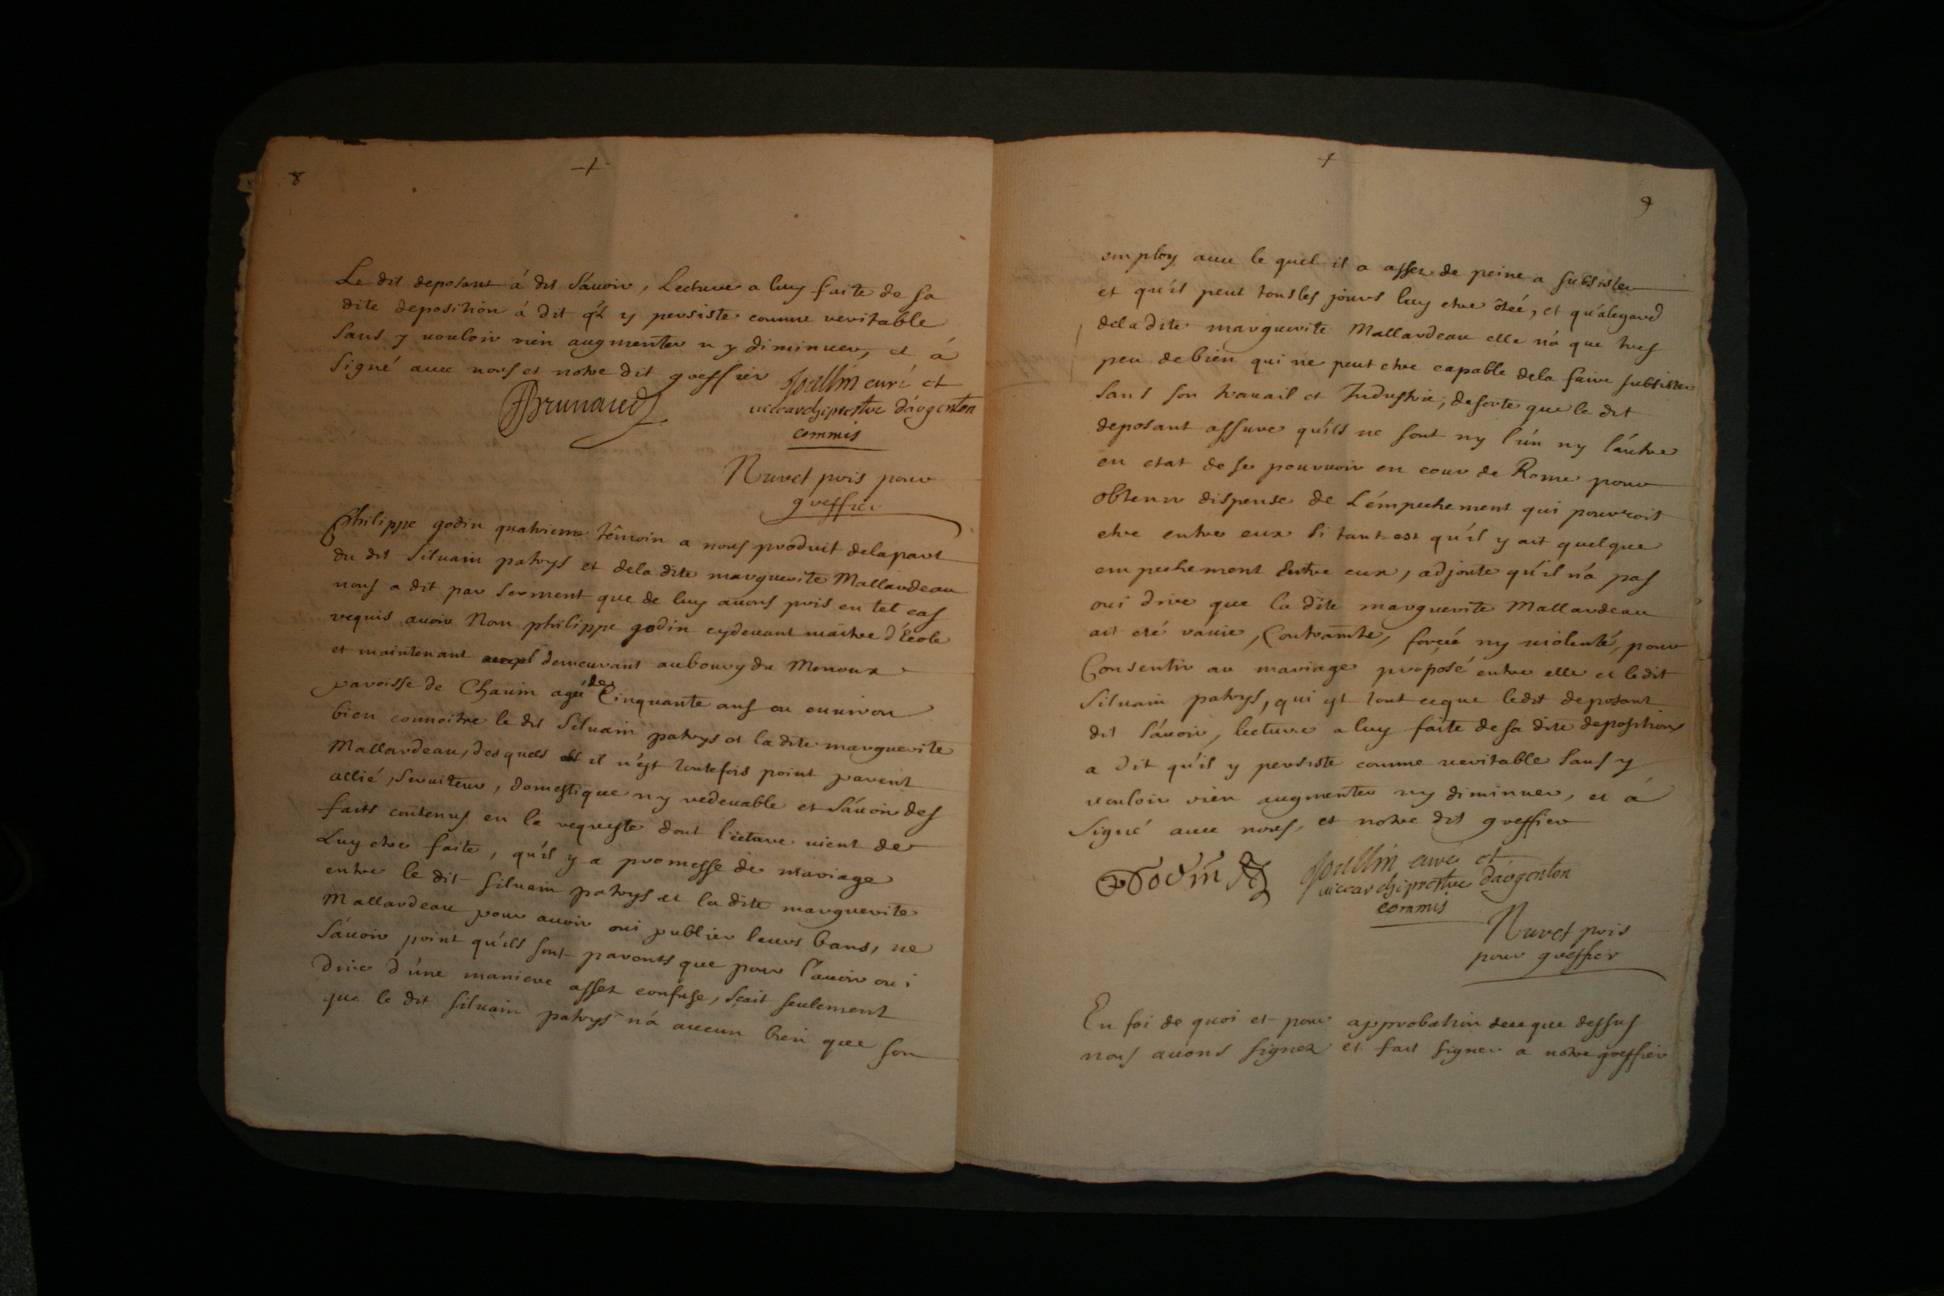 8
Le dit deposant á dit sávoir, Lecture a luy faite de sa
dite deposition á dit q'il y persiste comme veritable
sans y vouloir rien augmenter ny diminuer, et á
signé avec nous et notre dit greffier
curé et
Brunaud
vicearchiprestre d'árgenton
commis
Nuret pris pour
greffier
Philippe godin quatrieme têmoin a nous produit delapart
du dit Silvain patrys et dela dite marguerite Mallardeau
nous a dit par serment que de luy avons pris en tel cas
requis avoir Nom philippe godin cydevant maitre d'école
et maintenant demeurant aubourg du Menoux
paroisse de Chavin agé de Cinquante ans ou environ
bien connoitre le dit Silvain patrys et la dite marguerite
Mallardeau, desquels il n'est toutefois point parent
allié, serviteur, domestique ny redevable et sávoir des
faits contenus en la requeste dont lecture vient de
Luy etre faite, qu'il y a promesse de mariage
entre le dit silvain patrys et la dite marguerite
Mallardeau pour avoir oui publier leurs bans, ne
sávoir point qu'ils sont parents que pour l'avoir oui
dire d'úne maniere assez confuse, sçait seulement
que le dit silvain patrys n'á aucun bien que son
9
employ avec le quel il a assez de peine a subsister
et qu'il peut tousles jours luy etre ôteé, et qu'alegard
dela dite marguerite Mallardeau elle n'á que tres
peu debien qui ne peut etre capable dela faire subsister
sans son travail et Industrie, desorte que le dit
deposant assure qu'ils ne sont ny l'ún ny l'áutre
en etat de se pourvoir en cour de Rome pour
obtenir dispense de L'émpechement qui pourroit
etre entre eux si tant est qu'il y ait quelque
empechement Entre eux, adjoute qu'il n'a pas
oui dire que la dite marguerite Mallardeau
ait eté ravie, Contrainte, forçée ny violenté, pour
Consentir au mariage proposé entre elle et ledit
silvain patrys, qui est tout ceque ledit deposant
dit sávoir, lecture a luy faite de sa dite deposition
a dit qu'il y persiste comme veritable sans y
vouloir rien augmenter ny diminuer, et á
signé avec nous, et notre dit greffier
Godin
curé et
vicearchiprestre d'árgenton
commis
Nuret pris
pour greffier
En foi de quoi et pour approbation dece que dessus
nous avons signez et fait signer a notre greffier